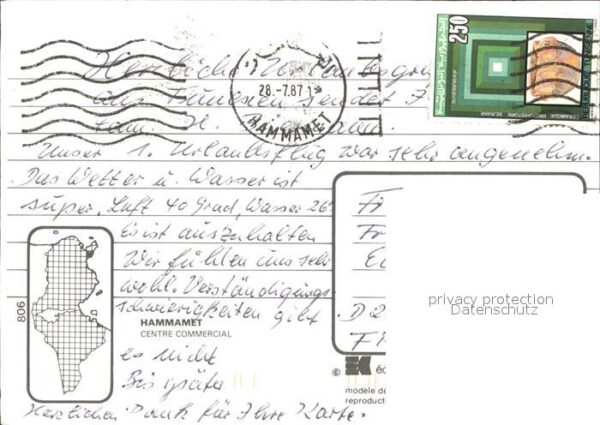 Herzliche Urlaubsgrü
aus Tunesien sendet
Fam. H.
Unser 1. Urlaubsflug war sehr angenehm.
Das Wetter u. Wasser ist
super. Luft 40 Grad, Wasser 26°
Es ist auszuhalten
Wir fühlen uns sehr
wohl. Verständigungs-
schwierigkeiten gibt
es nicht
Bis später
Herzlichen Dank für Ihre Karte.
28.-7.87
HAMMAMET
250
CERAMIQUE PREHISTOIRE SEJNANE
806
HAMMAMET
CENTRE COMMERCIAL
F
Fr
D 2
F
privacy protection
Datenschutz
©
modèle de
reproduct